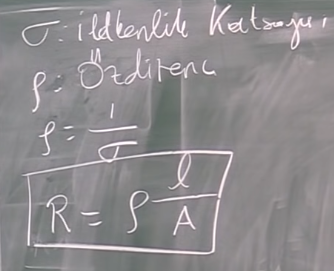 σ: iletkenlik Katsayısı
ρ: Özdirenç
ρ = 1/σ
R = ρ l/A